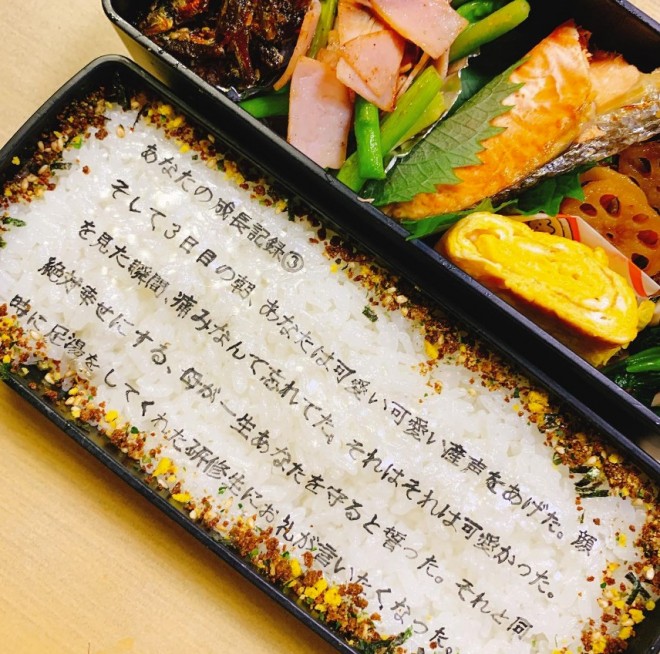 あなたの成長記録③
そして3日目の朝、あなたは可愛い可愛い産声をあげた。顔
を見た瞬間、痛みなんて忘れてた。それはそれは可愛かった。
絶対幸せにする、母が一生あなたを守ると誓った。それと同
時に足湯をしてくれた研修生にお礼が言いたくなった。